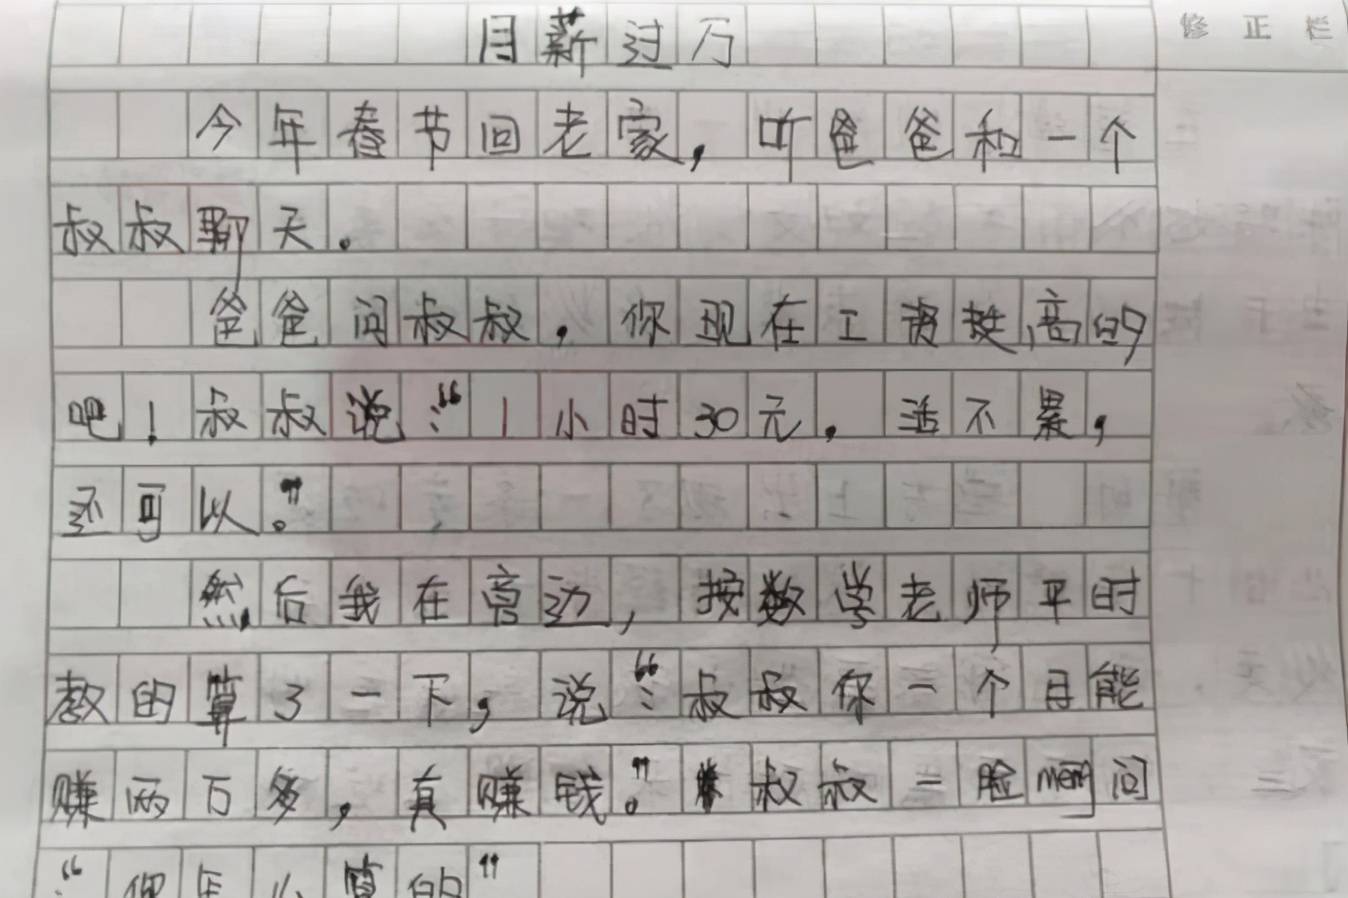 修正栏
月薪过万
今年春节回老家，听爸爸和一个
叔叔聊天。
爸爸问叔叔，你现在工资挺高的
吧！叔叔说：“1小时30元。活不累，
还可以。”
然后我在旁边，按数学老师平时
教的算了一下，说：“叔叔你一个月能
赚两万多，真赚钱。”叔叔一脸men问
：“你怎么算的”